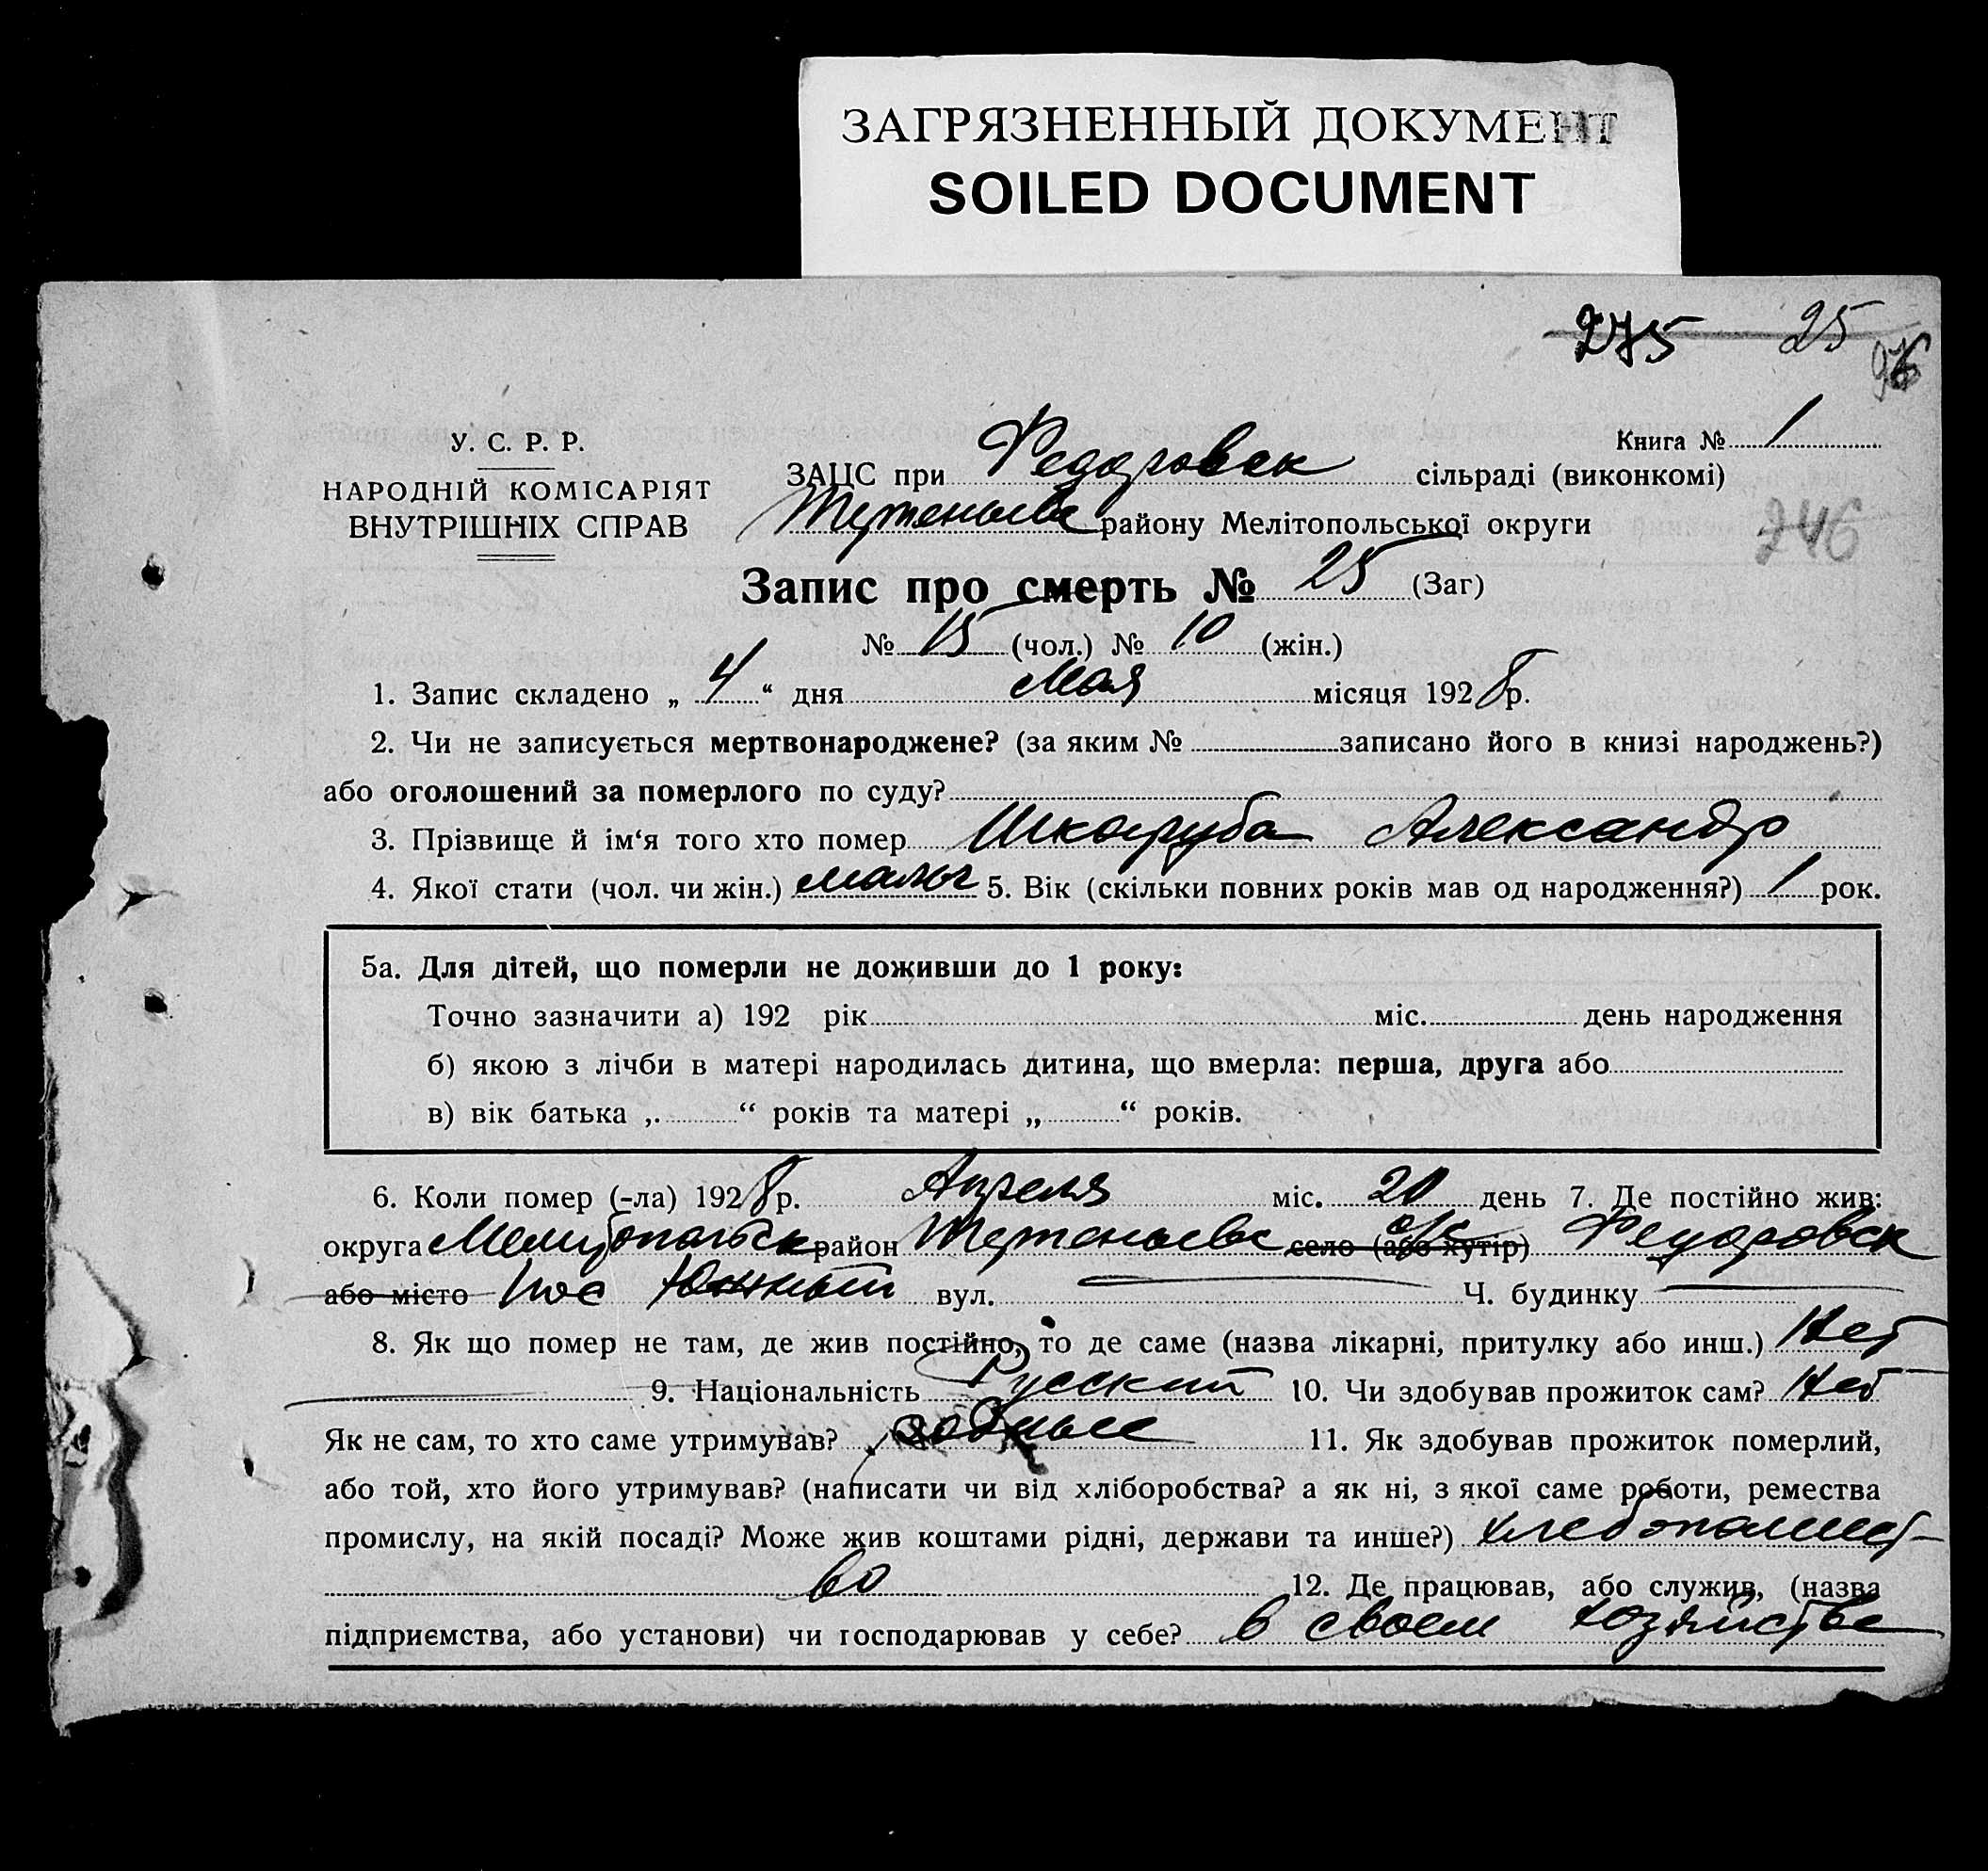 ЗАГРЯЗНЕННЫЙ ДОКУМЕНТ
SOILED DOCUMENT
275 25
У. С. Р. Р.
НАРОДНІЙ КОМІСАРІЯТ
ВНУТРІШНІХ СПРАВ
Книга № 1
ЗАЦС при Федоровск сільраді (виконкомі)
району Мелітопольської округи
246
Запис про смерть № 25 (Заг)
№ 15 (чол.) № 10 (жін.)
1. Запис складено „ 4 “ дня Мая місяця 1928 р.
2. Чи не записується мертвонароджене? (за яким № записано його в книзі народжень?)
або оголошений за померлого по суду?
3. Прізвище й ім‘я того хто помер Шкаруба Александр
4. Якої стати (чол. чи жін.) мальч 5. Вік (скільки повних років мав од народження?) 1 рок.
5а. Для дітей, що померли не доживши до 1 року:
Точно зазначити а) 192 рік міс. день народження
б) якою з лічби в матері народилась дитина, що вмерла: перша, друга або
в) вік батька „ “ років та матері „ “ років.
6. Коли помер (-ла) 1928 р. Апреля міс. 20 день 7. Де постійно жив:
округа Мелитопольск район село (або хутір) с/с Федоровск
або місто пос Южный вул. Ч. будинку
8. Як що помер не там, де жив постійно, то де саме (назва лікарні, притулку або инш.) Нет
9. Національність Русский 10. Чи здобував прожиток сам? Нет
Як не сам, то хто саме утримував? 11. Як здобував прожиток померлий,
або той, хто його утримував? (написати чи від хліборобства? а як ні, з якої саме роботи, ремества
промислу, на якій посаді? Може жив коштами рідні, держави та инше?) хлебопашест-
во 12. Де працював, або служив, (назва
підприємства, або установи) чи господарював у себе? в своем хозяйстве